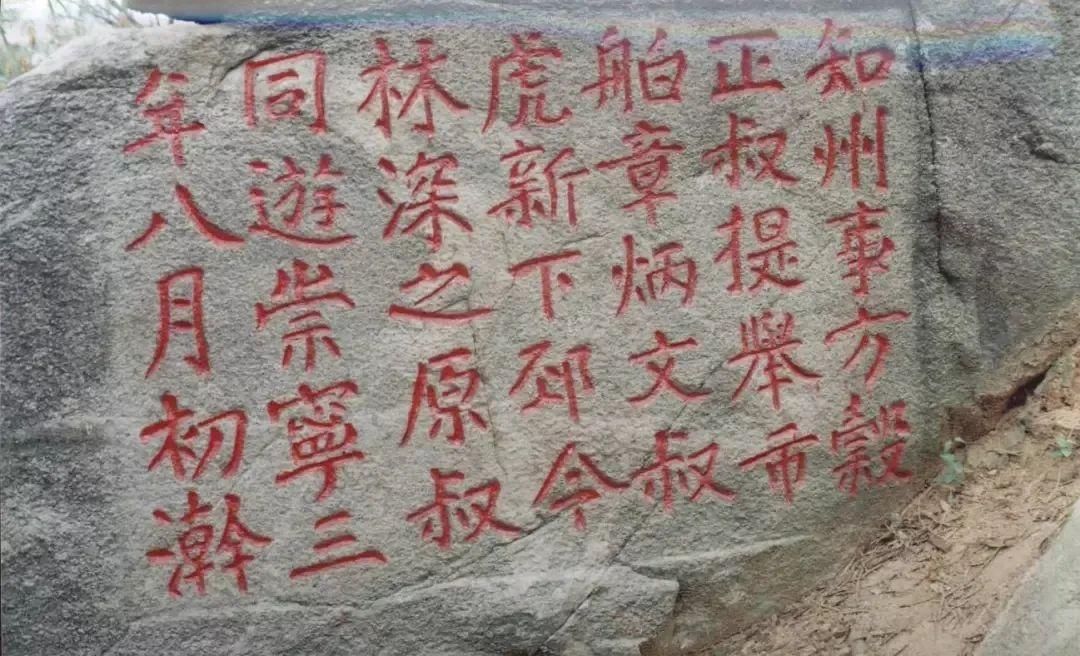 知州事方穀
正叔提舉市
舶章炳文叔
虎新下邳令
林深之原叔
同遊崇寧三
年八月初澣